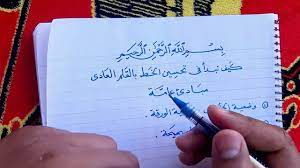 بسم الله الرحمن الرحيم
كيف نبدأ في تحسين الخط بالقلم العادي
مبادئ عامة
وضعية الورقة